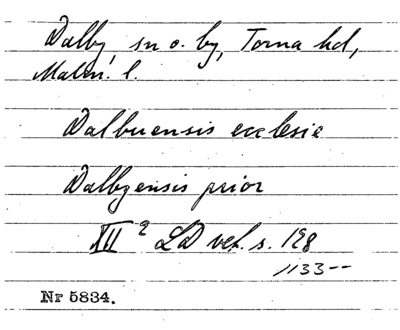 Dalby, sn o. by, Torna hd,
Malm. l.
Dalbuensis ecclesie
Dalbyensis prior
XII 2 LD vet. s. 128
1133--
Nr 5834.